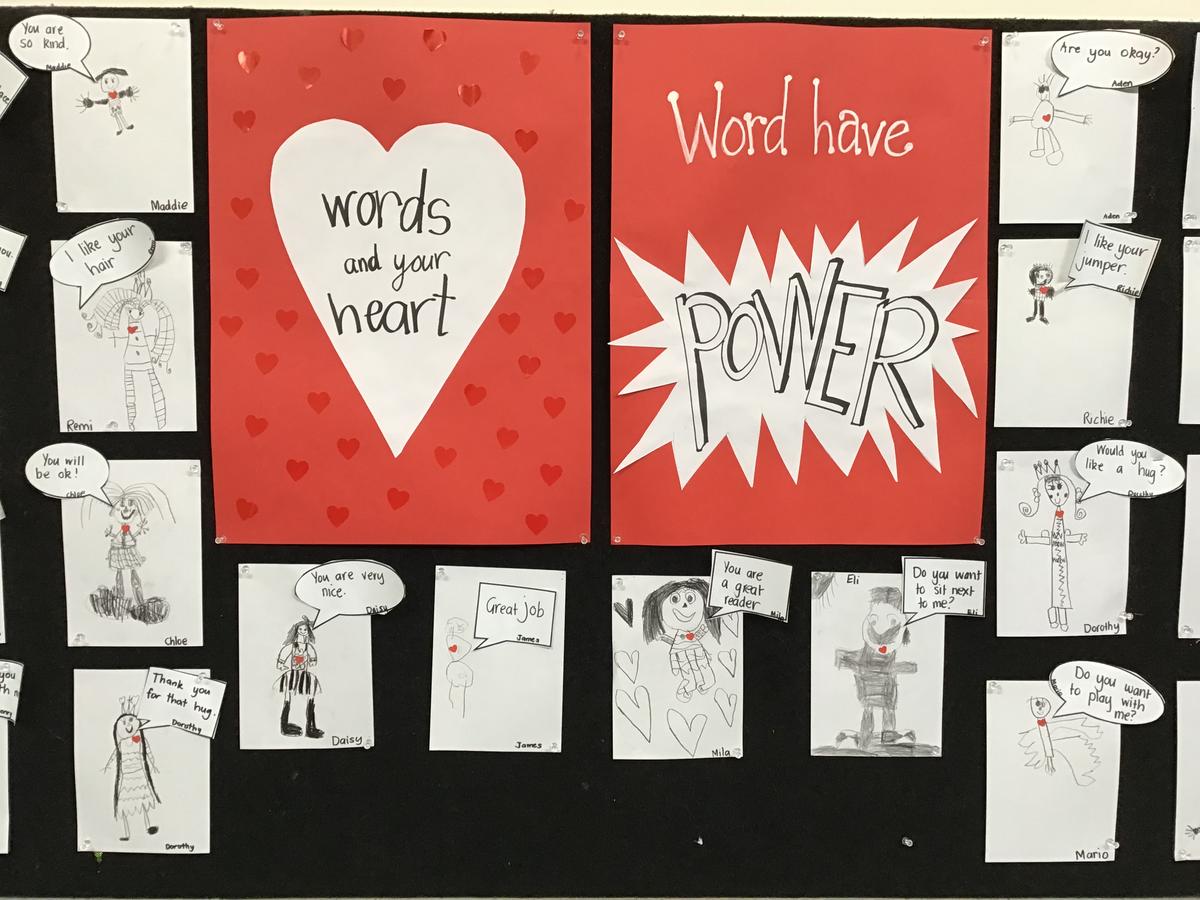 You are
so kind.
Maddie
Maddie
I like your
hair
Remi
You will
be ok!
Chloe
Chloe
Thank you
for that hug.
Dorothy
Dorothy
words
and your
heart
Word have
POWER
You are very
nice.
Daisy
Daisy
Great job
James
James
You are
a great
reader
Mila
Mila
Eli
Do you want
to sit next
to me?
Eli
Are you okay?
Aden
Aden
I like your
jumper.
Richie
Richie
Would you
like a hug?
Dorothy
Dorothy
Do you want
to play with
me?
Mario
Mario